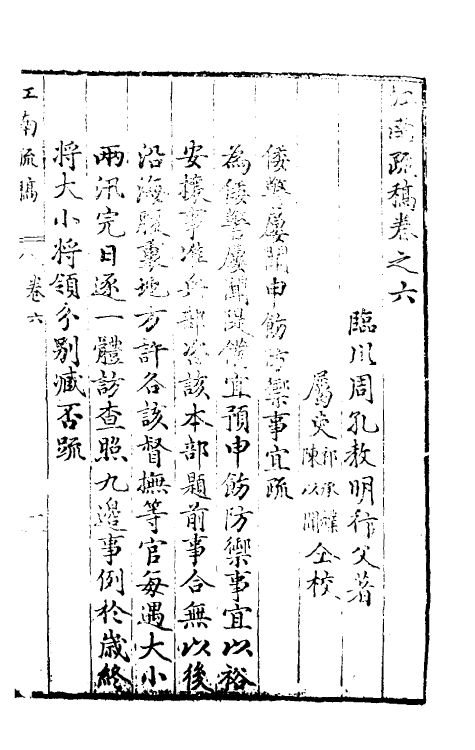 江南疏稿卷之六
臨川周孔教明行父著
屬吏
邵承
陳以聞
仝校
倭警屢聞申飭防禦事宜疏
為倭警屢聞隄備宜預申飭防禦事宜以裕
安攘事准兵部咨該本部題前事合無以後
沿海腹裏地方許各該督撫等官每遇大小
兩汛完日逐一體訪查照九邊事例於歲終
將大小將領分別臧否疏
江南疏稿
卷六
一